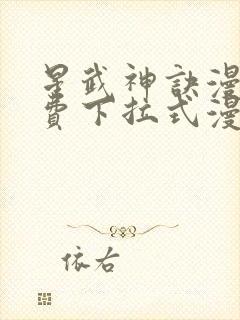 星武神訣漫
費下拉式漫
依右